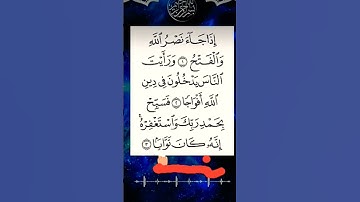 إِذَا جَآءَ نَصْرُ ٱللَّهِ
وَٱلْفَتْحُ ١ وَرَأَيْتَ
ٱلنَّاسَ يَدْخُلُونَ فِى دِينِ
ٱللَّهِ أَفْوَاجًا ٢ فَسَبِّحْ
بِحَمْدِ رَبِّكَ وَٱسْتَغْفِرْهُ ۚ
إِنَّهُۥ كَانَ تَوَّابًۢا ٣